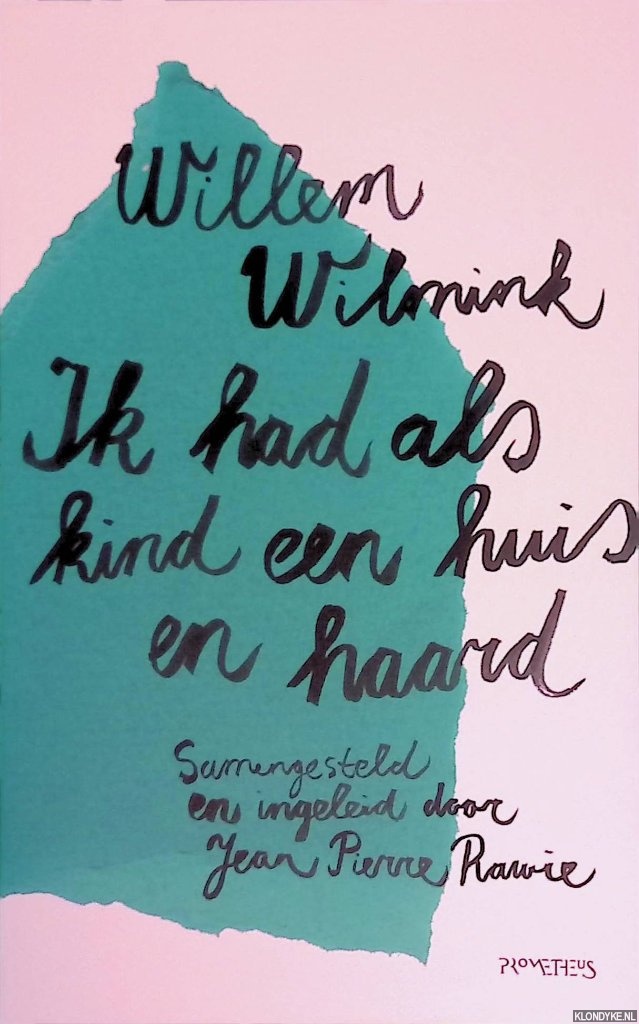 Willem
Wilmink
Ik had als
kind een huis
en haard
Samengesteld
en ingeleid door
Jean Pierre Rawie
PROMETHEUS
KLONDYKE.NL